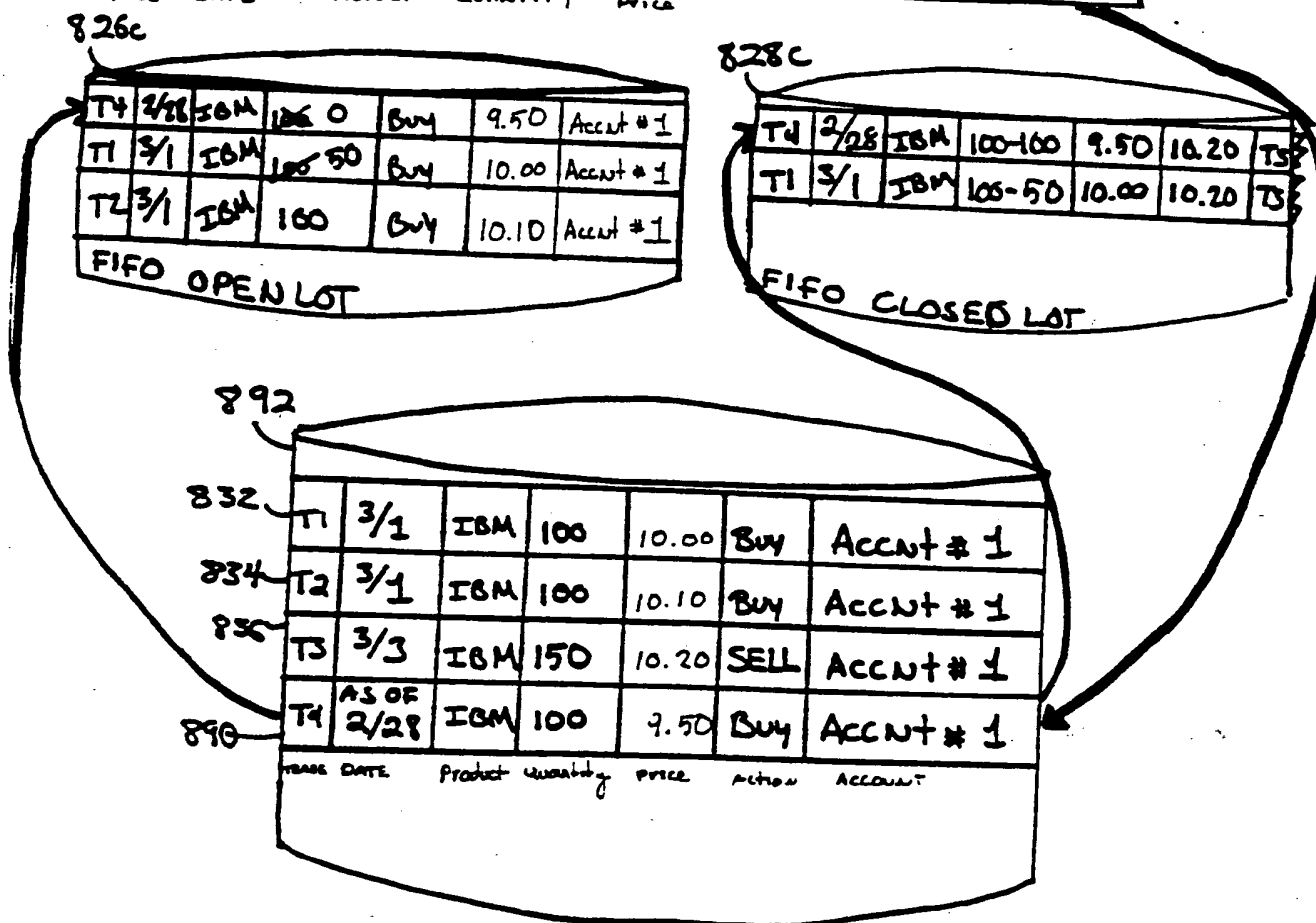 Price
826c
T4 2/28 IBM 100 0 Buy 9.50 Accnt #1
T1 3/1 IBM 100 50 Buy 10.00 Accnt #1
T2 3/1 IBM 100 Buy 10.10 Accnt #1
FIFO OPEN LOT
828c
T4 2/28 IBM 100-100 9.50 10.20 T3
T1 3/1 IBM 100-50 10.00 10.20 T3
FIFO CLOSED LOT
892
832 T1 3/1 IBM 100 10.00 Buy Accnt # 1
834 T2 3/1 IBM 100 10.10 Buy Accnt # 1
836 T3 3/3 IBM 150 10.20 SELL Accnt # 1
890 T4 AS OF 2/28 IBM 100 9.50 Buy Accnt # 1
TRADE DATE Product Quantity PRICE ACTION ACCOUNT